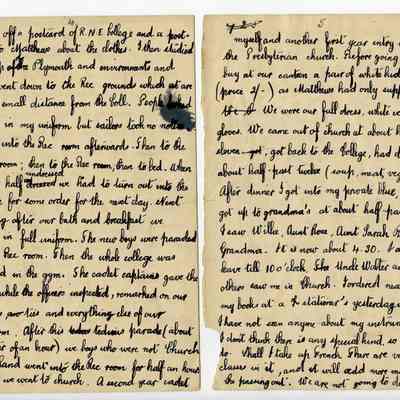 off a postcard of R.N.E. College and a post-
Matthews about the clothes. I then studied
of the Plymouth and environments and
went down to the Rec grounds which at are
small distance from the Coll. People
in my uniform but sailors took no notice
into the Rec room afterwards. Then to the
room; then to the Rec room, then to bed. When
half undressed we had to turn out into the
for some order for the next day. Next
after our bath and breakfast we
in full uniform. The new boys were paraded
Rec room. Then the whole college was
in the gym. The cadet captains gave the
while the officer inspected, remarked on our
and everything else of our
After this tedious parade (about
of an hour) we boys who were not Church
went into the Rec room for half an hour
we went to church. A second year cadet
5
myself and another first year entry
the Presbyterian church. Before going
buy at our canteen a pair of white kid
(price 2/-) as Matthews had only supp
We wore our full dress, white
gloves. We came out of church at about
got back to the College, had
about half-past twelve (soup, meat, veg
After dinner I got into my private blue,
got up to grandma's at about half-pas
I saw Willie, Aunt Rose, Aunt Sarah
Grandma. It is now about 4.30. I
leave till 10 o'clock. Uncle Walter a
others saw me in Church. I ordered
my books at a stationer's yesterday
I have not seen anyone about my instrum
I don't think there is any special kind, so
to. Shall I take up French. There are
classes in it, and it will add more m
the passing out. We are not going to d